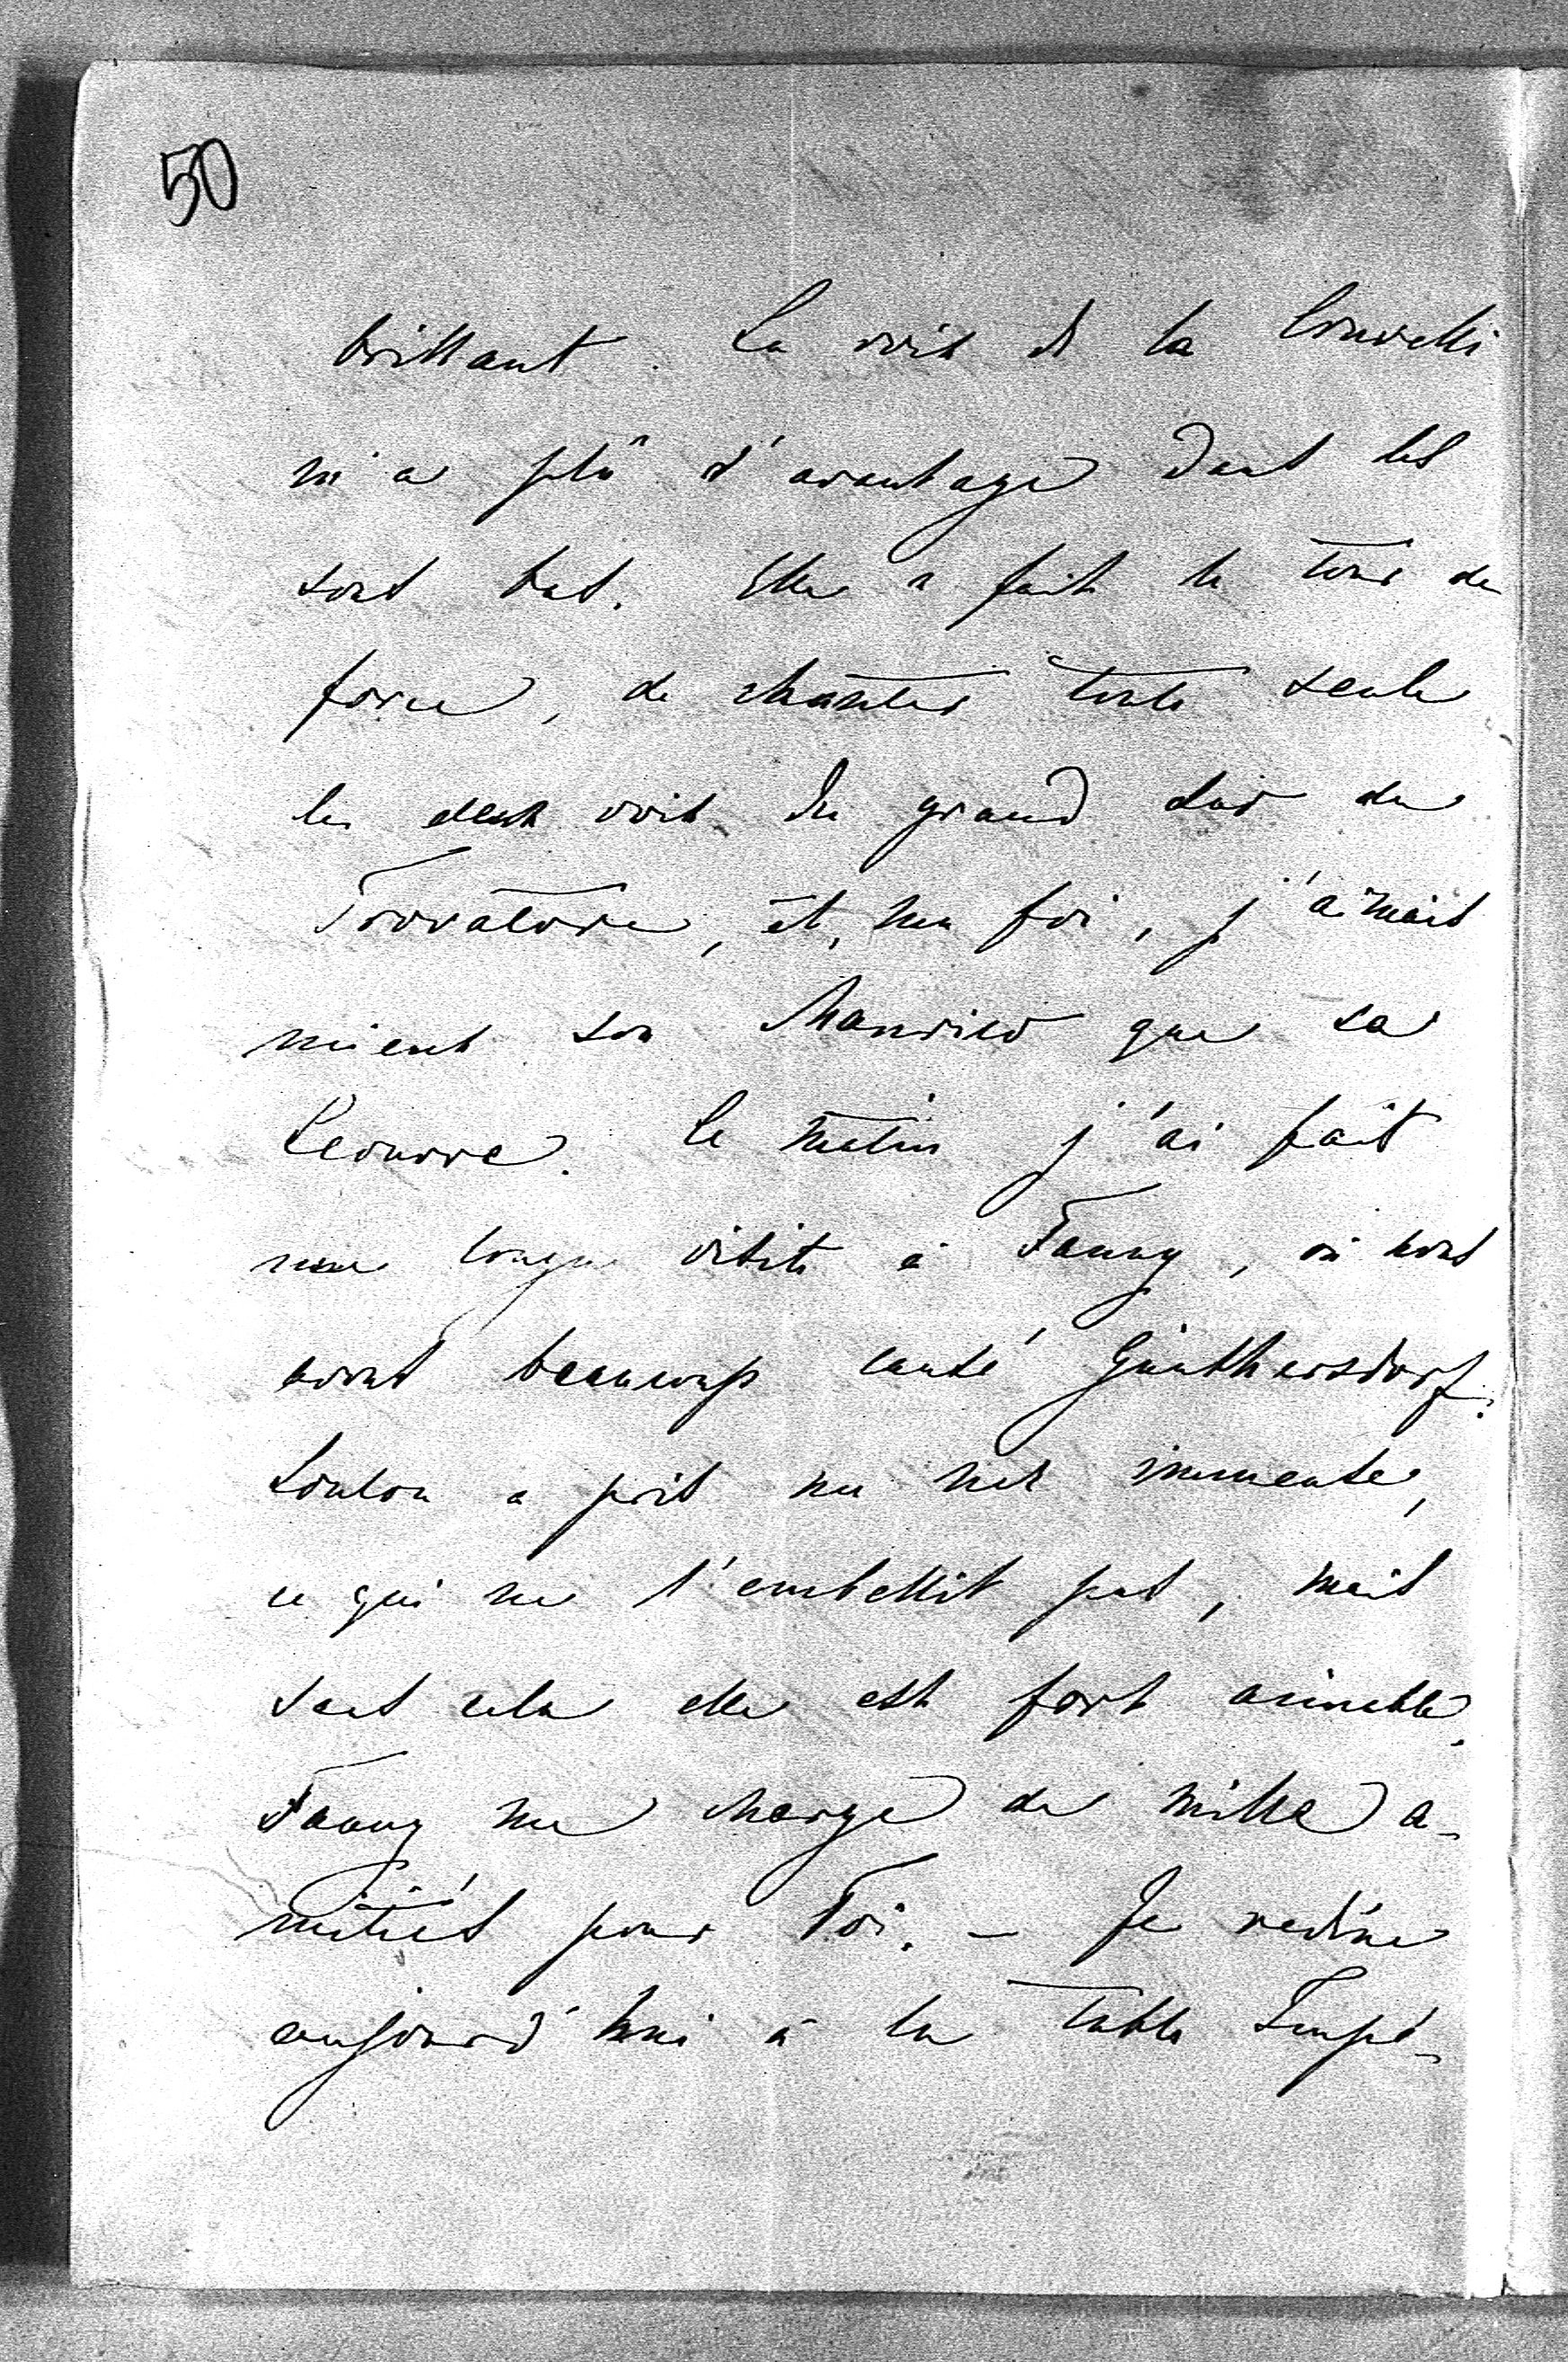 50
brillant. La voix de la Cruvelli
m'a plû d'avantage dans les
sons bas. Elle a fait le tour de
force, de chanter toute seule
les deux voix du grand duo du
Trovatore, et, ma foi, j'aimais
mieux son Manrico que sa
Leonore. Le matin j'ai fait
une longue visite à Fanny, où nous
avons beaucoup causé Günthersdorf.
Loulou a pris un nez immense,
ce qui ne l'embellit pas, mais
sans cela elle est fort aimable.
Fanny me charge de mille a-
mitiés pour Toi. – Je redîne
aujourd'hui à la table Impé-